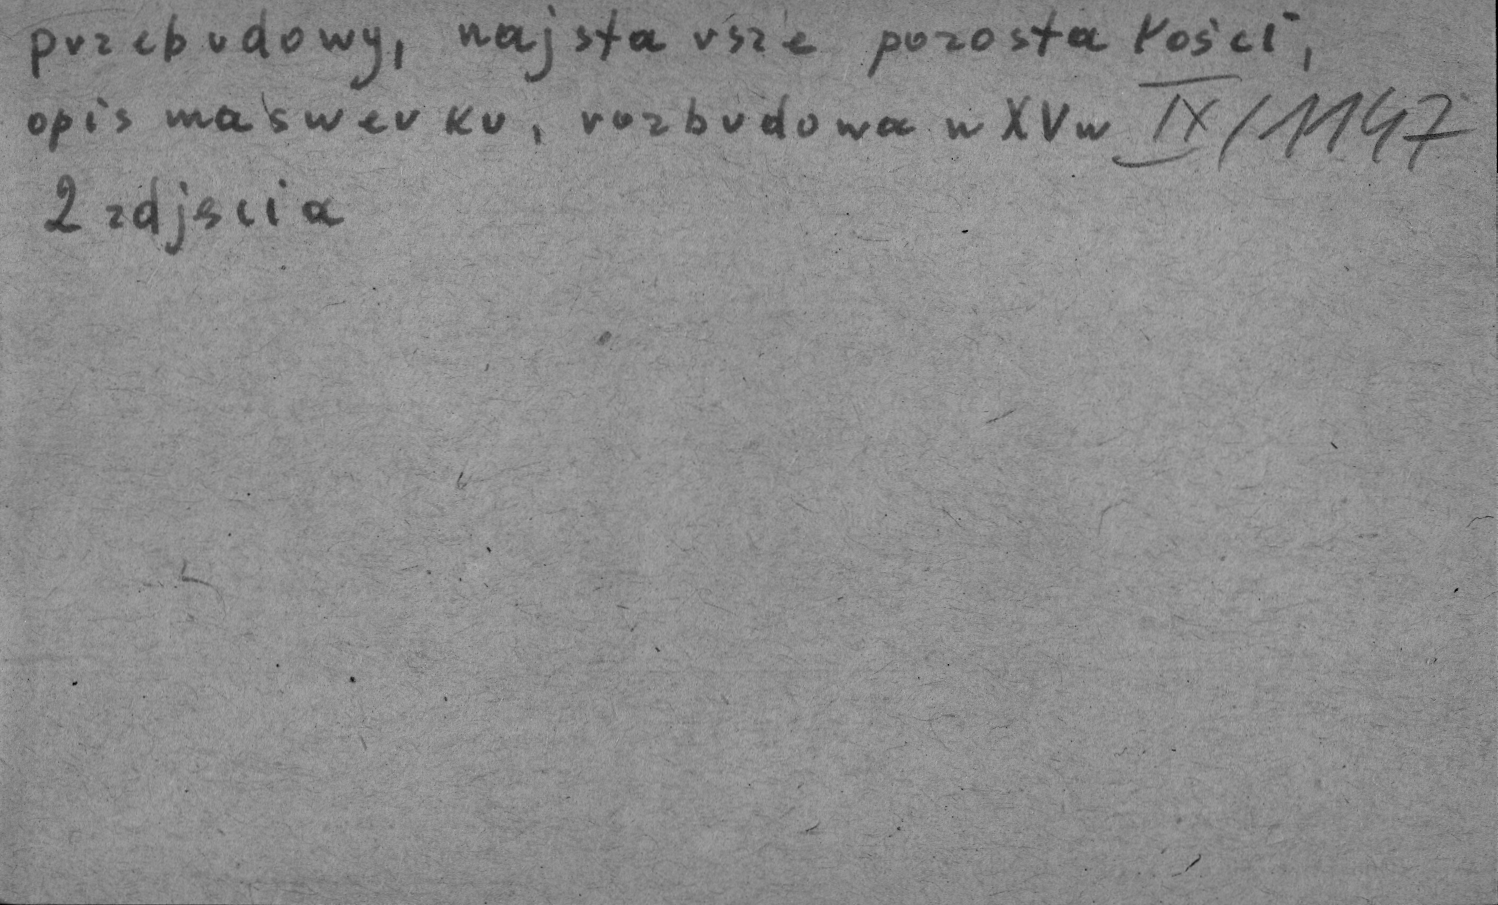 przebudowy, najstarsze pozostałości,
opis maswerku, rozbudowa w XVw IX/1147
2 zdjęcia